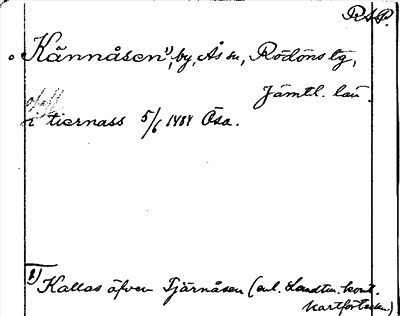 R.S.P.
Kännåsen¹), by, Ås sn, Rödöns tg,
Jämtl. län.
i tiernass 5/6 1484 Ösa.
1) Kallas äfven Tjärnåsen (enl. Landtm. kont.
kartförteckn.)